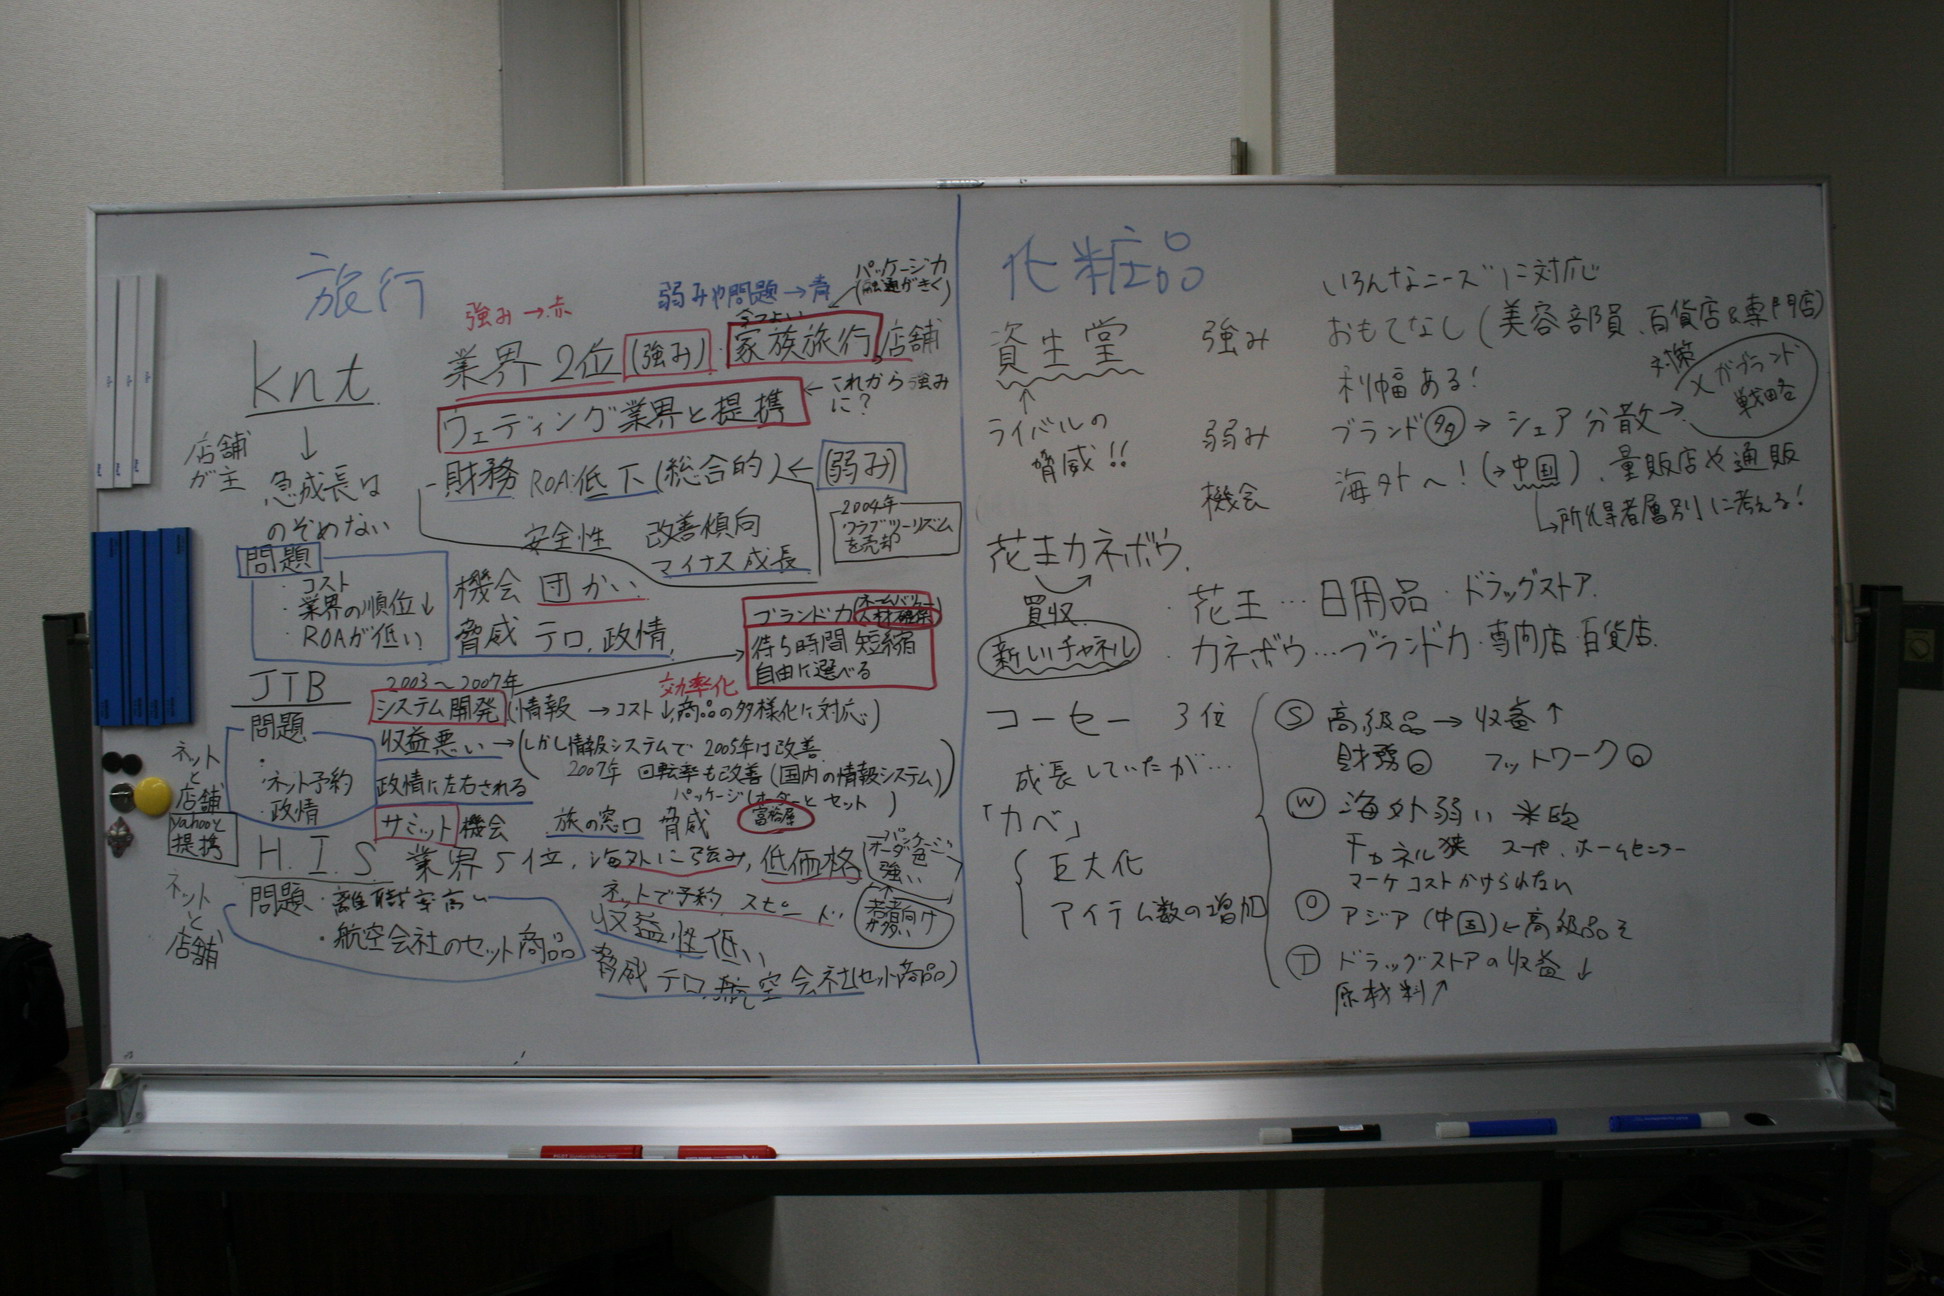 旅行
強み→赤
弱みや問題→青
パッケージ力
(融通がきく)
knt
業界2位(強み)・家族旅行,店舗
ウェディング業界と提携
←これから強み
に?
店舗
が主
↓
急成長は
のぞめない
-財務 ROA低下(総合的)←(弱み)
安全性 改善傾向
マイナス成長
2004年
クラブツーリズム
を売却
問題
・コスト
・業界の順位↓
・ROAが低い
機会 団かい
脅威 テロ,政情,
ブランド力
人材確保
待ち時間短縮
自由に選べる
JTB
2003〜2007年
効率化
システム開発(情報→コスト↓,商品の多様化に対応)
問題
・ネット予約
・政情
収益悪い→(しかし情報システムで2005年は改善
2007年 回転率も改善(国内の情報システム))
政情に左右される
パッケージ(オーダーとセット)
ネット
と
店舗
yahooと
提携
サミット 機会 旅の窓口 脅威
富裕層
H.I.S 業界5位,海外に強み,低価格
パッケージ
オーダー色
強い
問題・離職率高い
・航空会社のセット商品
ネットで予約 スピード
収益性低い
若者向け
が多い
ネット
と
店舗
脅威 テロ,航空会社(セット商品)
化粧品
資生堂
↑
ライバルの
脅威!!
強み
いろんなニーズに対応
おもてなし(美容部員、百貨店&専門店)
利幅ある!
弱み
ブランド多→シェア分散→
対策
メガブランド
戦略
機会
海外へ!(→中国)、量販店や通販
↳所得者層別に考える!
花王カネボウ
買収
新しいチャネル
・花王…日用品・ドラッグストア
・カネボウ…ブランド力・専門店・百貨店
コーセー 3位
成長していたが…
「カベ」
巨大化
アイテム数の増加
S 高級品→収益↑
財務◎ フットワーク◎
W 海外弱い
チャネル狭 スーパ、ホームセンター
マーケコストかけられない
O アジア(中国)←高級品を
T ドラッグストアの収益↓
原材料↑